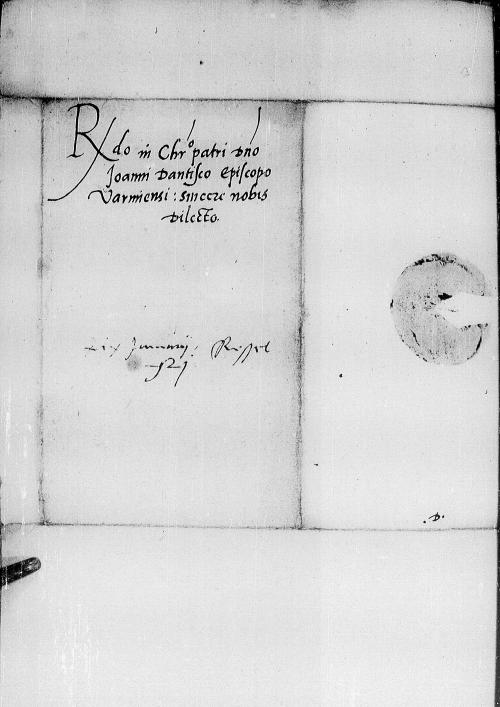 Rdo in Chro patri Dno
Ioanni Dantisco Episcopo
Varmiensi: sincere nobis
Dilecto.
xix Januarij. Ressel
. D.